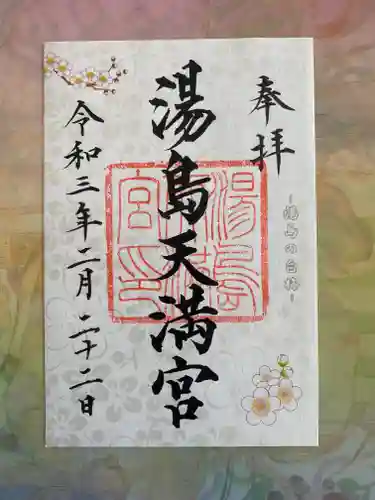 奉拝
-湯島の白梅-
湯島天満宮
湯島天満宮印
令和三年二月二十二日